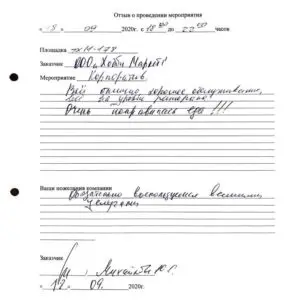 Отзыв о проведении мероприятия
« 18 » 09 2020г. с 18 00 до 22 00 часов
Площадка тх М-178
Заказчик ООО «Хобби Маркет»
Мероприятие Корпоратив
Всё отлично хорошее обслуживание,
всё на уровне ресторана
Очень понравилась еда!!!
Ваши пожелания компании
Обязательно воспользуемся вашими
услугами
Заказчик
Михайлов Ю.Г.
« 19 » 09. 2020г.